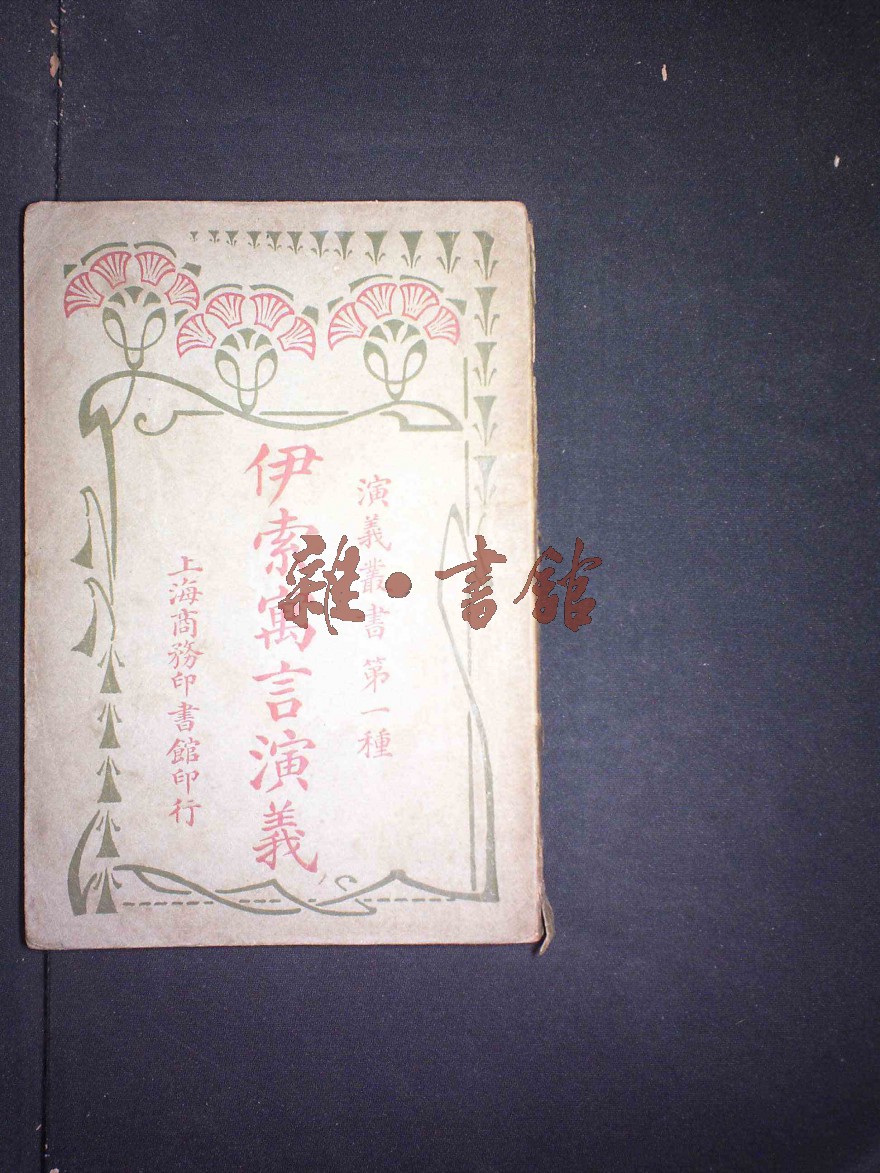 演義叢書第一種
伊索寓言演義
上海商務印書館印行
雜•書館